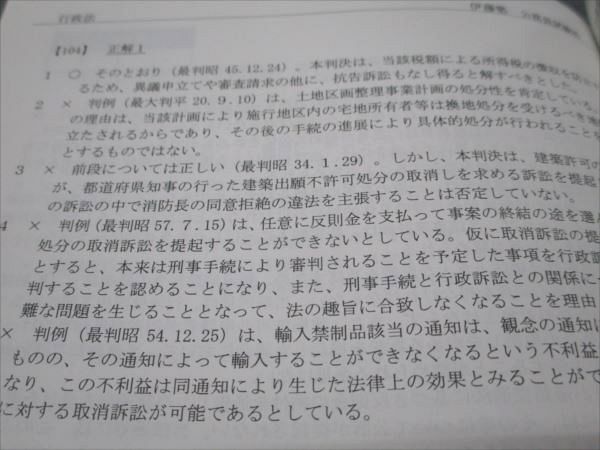 行政法
伊藤塾 公務員試験
【104】 正解 1
1 ○ そのとおり（最判昭 45.12.24）。本判決は、当該税額による所得税の徴収を防
るため、異議申立てや審査請求の他に、抗告訴訟もなし得ると解すべきとした。
2 × 判例（最大判平 20.9.10）は、土地区画整理事業計画の処分性を肯定している。
の理由は、当該計画により施行地区内の宅地所有者等は換地処分を受けるべき地
立たされるからであり、その後の手続の進展により具体的処分が行われることを
とするものではない。
3 × 前段については正しい（最判昭 34.1.29）。しかし、本判決は、建築許可の
が、都道府県知事の行った建築出願不許可処分の取消しを求める訴訟を提起
の訴訟の中で消防長の同意拒絶の違法を主張することは否定していない。
4 × 判例（最判昭 57.7.15）は、任意に反則金を支払って事案の終結の途を選
処分の取消訴訟を提起することができないとしている。仮に取消訴訟の提
とすると、本来は刑事手続により審判されることを予定した事項を行政訴
判することを認めることになり、また、刑事手続と行政訴訟との関係に
難な問題を生じることとなって、法の趣旨に合致しなくなることを理由
× 判例（最判昭 54.12.25）は、輸入禁制品該当の通知は、観念の通知
ものの、その通知によって輸入することができなくなるという不利益
なり、この不利益は同通知により生じた法律上の効果とみることがで
に対する取消訴訟が可能であるとしている。